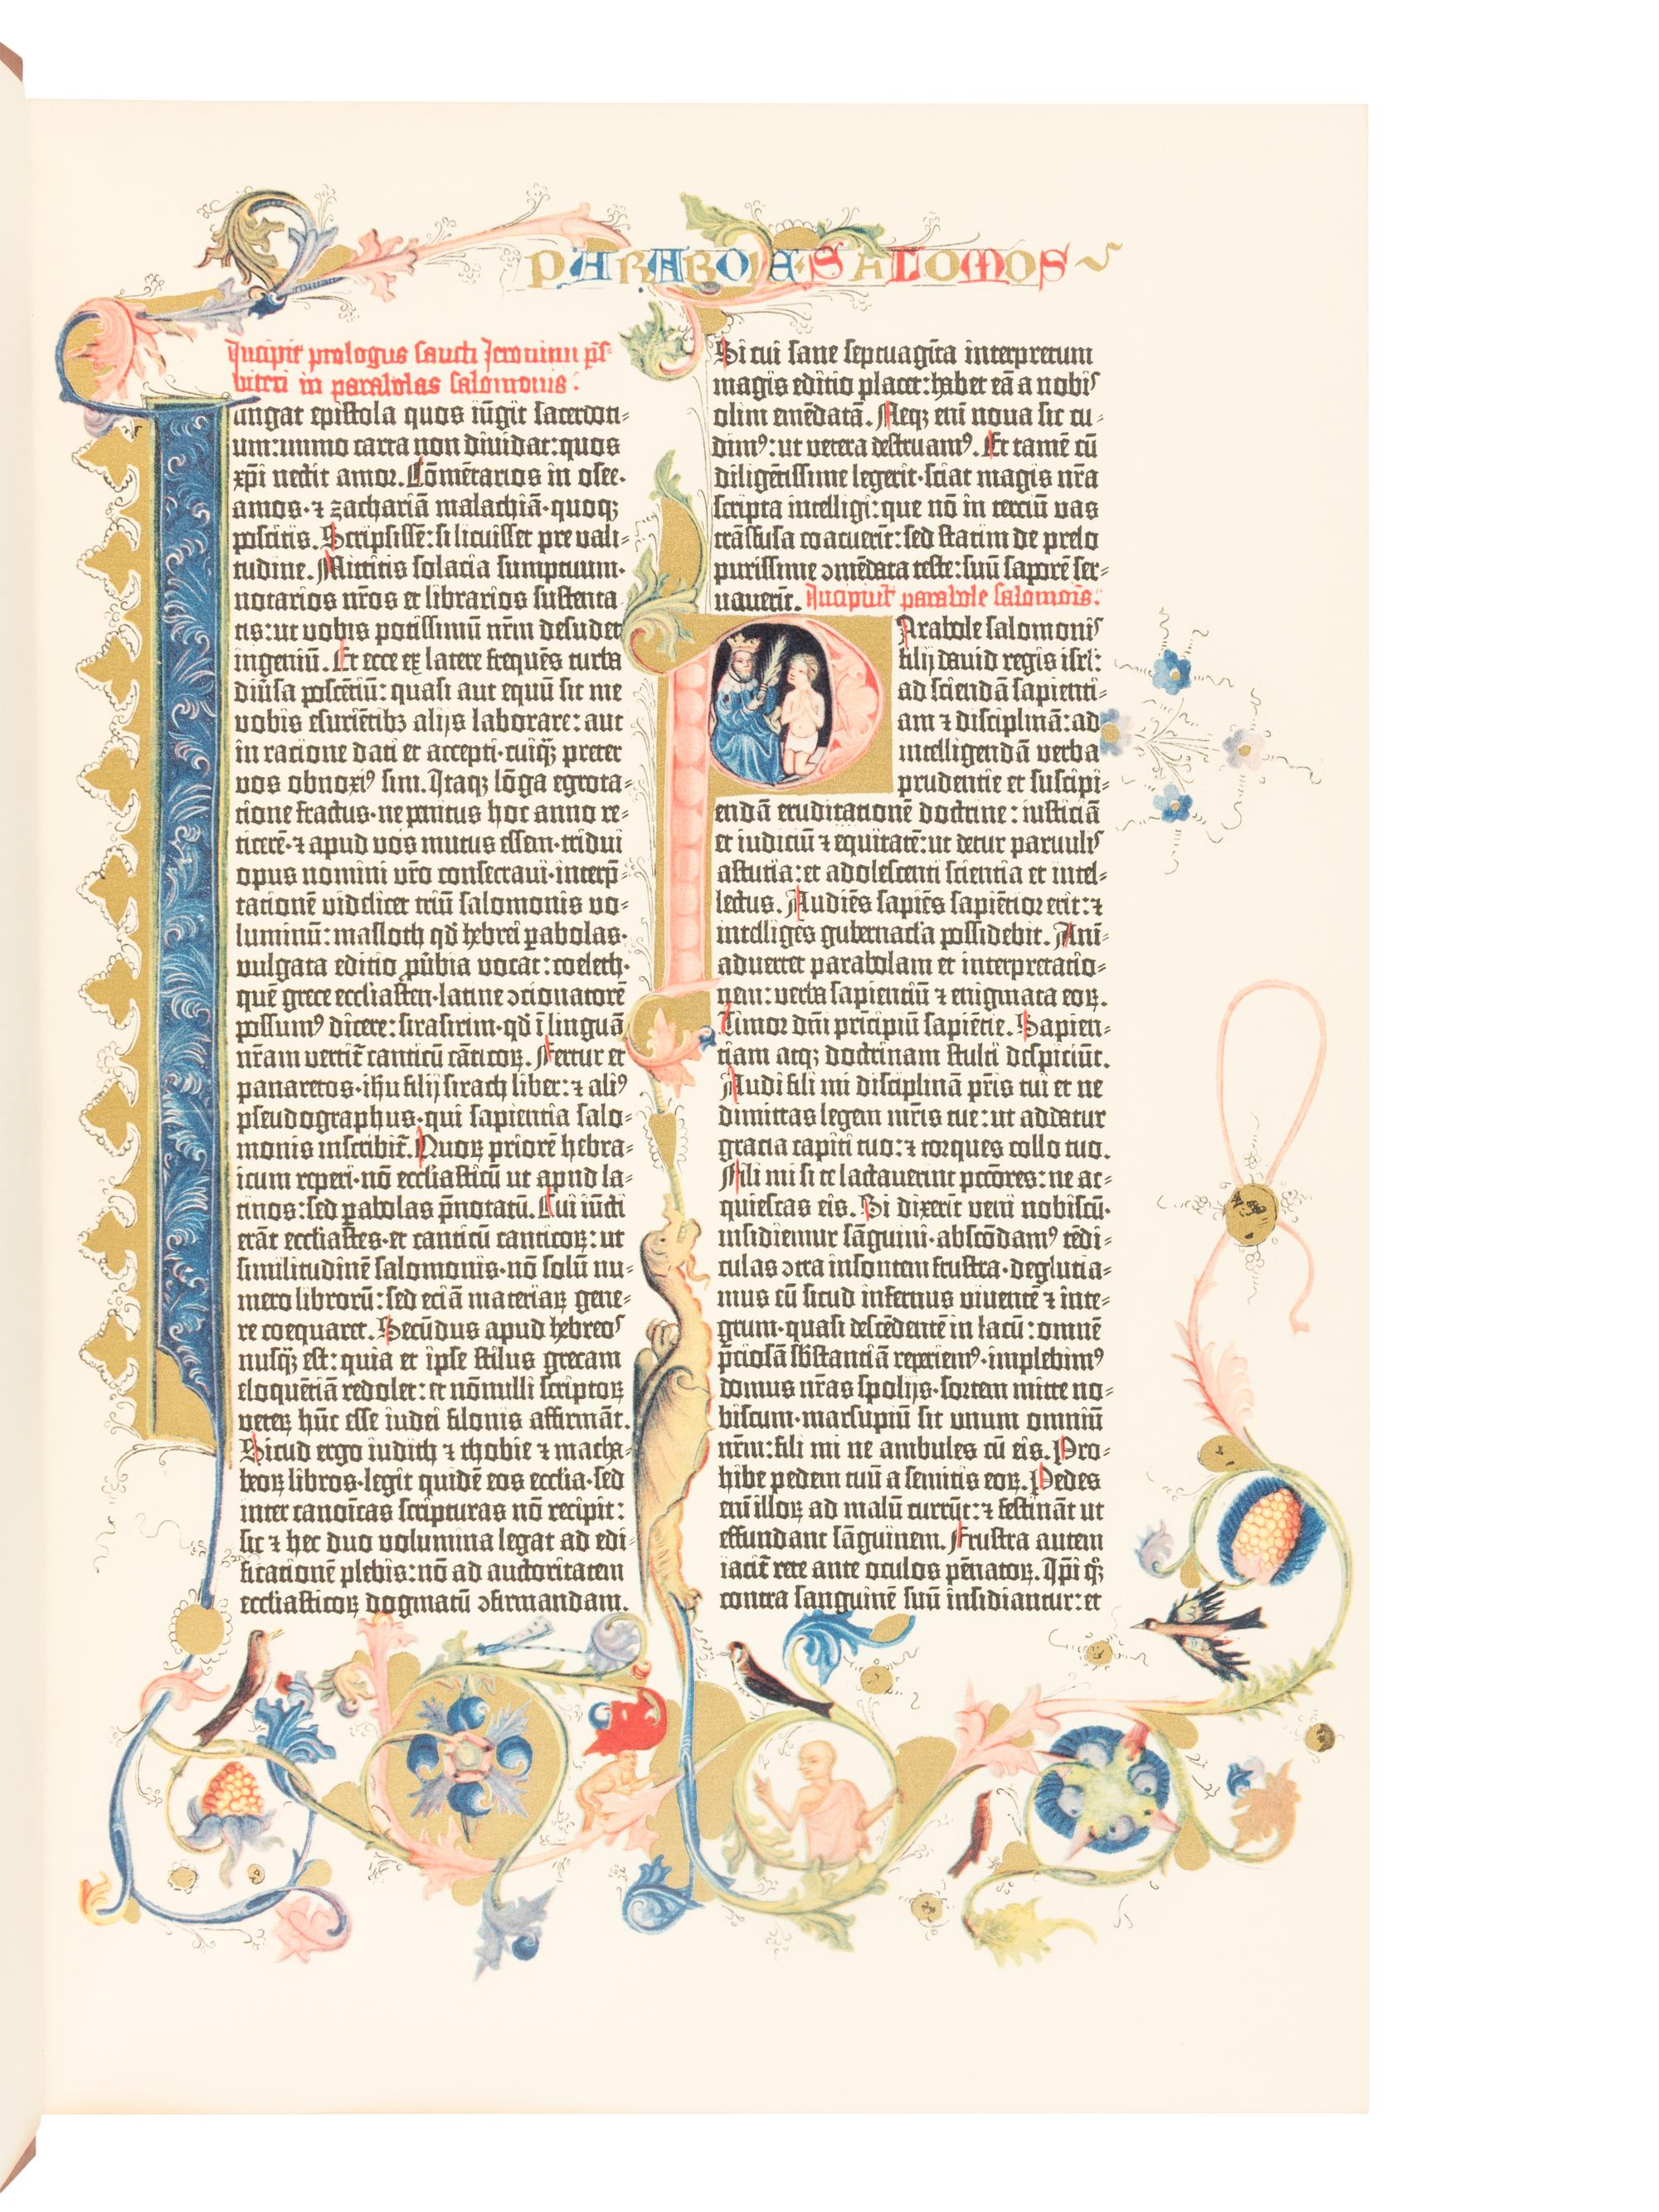 PARABOLAE SALOMOS
Incipit prologus sancti Jeronimi p̄s-
biteri in parabolas salomonis.
Iungat epistola quos iūgit sacerdoti-
um: immo carta non diuidat: quos
xp̄i nectit amor. Cōmētarios in osee.
amos. ⁊ zachariā malachiā. quoqꝫ
poscitis. Scripsissē: si licuisset pre vali-
tudine. Mittitis solacia sumptuum.
notarios nr̄os et librarios sustenta-
tis: ut vobis potissimū nr̄m desudet
ingeniū. Et ecce ex latere frequēs turba
diūsa poscētiū: quasi aut equū sit me
vobis esuriētibꝫ alijs laborare: aut
in racione dati et accepti. cuiq̄ꝫ preter
vos obnoxiꝰ sim. Itaqꝫ lōga egrota-
tione fractus. ne penitus hoc anno re-
ticerē. ⁊ apud vos mutus essem. tridui
opus nomini vr̄o consecraui. interp̄-
tationē videlicet triū salomonis vo-
luminū: masloth qd̄ hebrei ꝑabolas.
vulgata editio ꝓūbia vocat: coeleth.
quē grece ecclīasten. latine ꝯcionatorē
possumꝰ dicere: sirasirim. qd̄ ī linguā
nr̄am vertit̄ canticū cāticoꝝ. Fertur et
panaretos. ih̄u filij sirach liber: ⁊ aliꝰ
pseudographus. qui sapientia salo-
monis inscribit̄. Quoꝝ priorē hebra-
icum reperi. nō eccl̄iasticū ut apud la-
tinos: sed ꝑabolas p̄notatū. Cui iūcti
erāt eccl̄iastes. et canticū canticoꝝ: ut
similitudinē salomonis. nō solū nu-
mero librorū: sed eciā materiaꝝ gene-
re coequaret. Secūdus apud hebreos
nusq̄ꝫ est: quia et ipse stilus grecam
eloquētiā redolet: et nōnulli scriptoꝝ
veteꝝ hūc esse iudei filonis affirmāt.
Sicud ergo iudith ⁊ thobie ⁊ macha-
beoꝝ libros. legit quidē eos eccl̄ia. sed
inter canoīcas scripturas nō recipit:
sic ⁊ hec duo volumina legat ad edi-
ficationē plebis: nō ad auctoritatem
eccl̄iasticoꝝ dogmatū ꝯfirmandam.
Si cui sane septuagīta interpretum
magis editio placet: habet eā a nobis
olim emēdatā. Neqꝫ enī noua sic cu-
dimꝰ: ut vetera destruamꝰ. Et tamē cū
diligētissime legerit. sciat magis nr̄a
scripta intelligi: que nō in terciū vas
trāsfusa coacuerīt: sed statim de prelo
purissime ꝯmēdata teste: suū saporē ser-
uauerīt. Incipiūt parabole salomōis.
Parabole salomonis
filij dauid regis isrl̄:
ad sciendā sapienti-
am ⁊ disciplinā: ad
intelligendā verba
prudentie et suscipi-
endā eruditationē doctrine: iusticiā
et iudiciū ⁊ equitatē: ut detur paruulis
astutia: et adolescenti scientia et intel-
lectus. Audiēs sapiēs sapiētior erit: ⁊
intelliges gubernacl̄a possidebit. Anī-
aduertet parabolam et interpretatio-
nem: verba sapientiū ⁊ enigmata eoꝝ.
Timor dn̄i prīcipiū sapiētie. Sapien-
tiam atqꝫ doctrinam stulti despiciūt.
Audi fili mi disciplinā pr̄is tui et ne
dimittas legem mr̄is tue: ut addatur
gracia capiti tuo: ⁊ torques collo tuo.
Fili mi si te lactauerint pctōres: ne ac-
quiescas eis. Si dixerit veni nobiscū.
insidiemur sāguini. abscōdamꝰ tēdi-
culas ꝯtra insontem frustra. degluta-
mus eū sicud infernus viuentē ⁊ inte-
grum. quasi descēdentē in lacū: omnē
p̄ciosā sb̄stantiā reperiemꝰ. implebimꝰ
domus nr̄as spolijs. sortem mitte no-
biscum. marsupiū sit unum omniū
nr̄m: fili mi ne ambules cū eis. Pro-
hibe pedem tuū a semitis eoꝝ. Pedes
enī illoꝝ ad malū currūt: ⁊ festināt ut
effundant sāguinem. Frustra autem
iacit̄ rete ante oculos pēnatoꝝ. Ip̄i qͦꝫ
contra sanguinē suū insidiantur: et